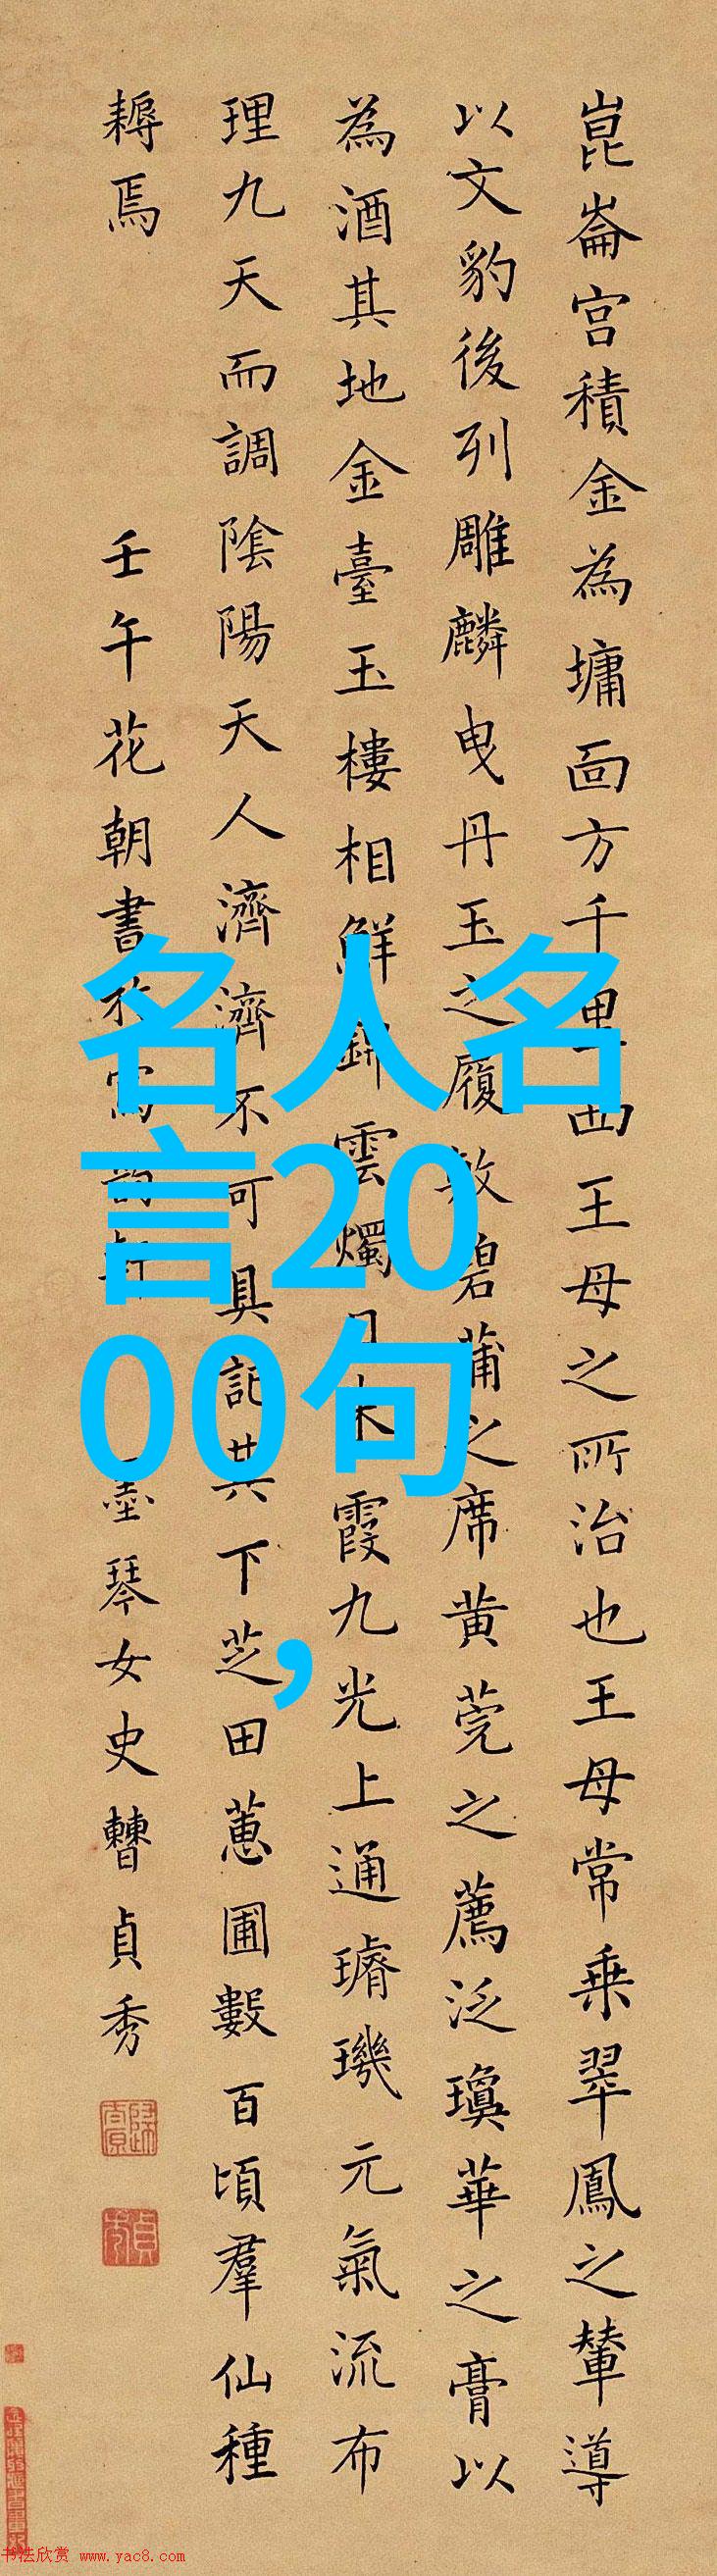 崑崙宮積金為墉面方千里西王母之所治也王母常乘翠鳳之輦導
以文豹後列雕麟曳丹玉之履敷碧蒲之席黃莞之薦泛瓊華之膏以
為酒其地金臺玉樓相鮮雲燭霞九光上通璿璣元氣流布
理九天而調陰陽天人濟濟不可具記其下芝田蕙圃數百頃羣仙種
耨焉
壬午花朝書於寫韵軒
墨琴女史曹貞秀
名人名
言20
00句
,
书法欣赏 www.yac8.com